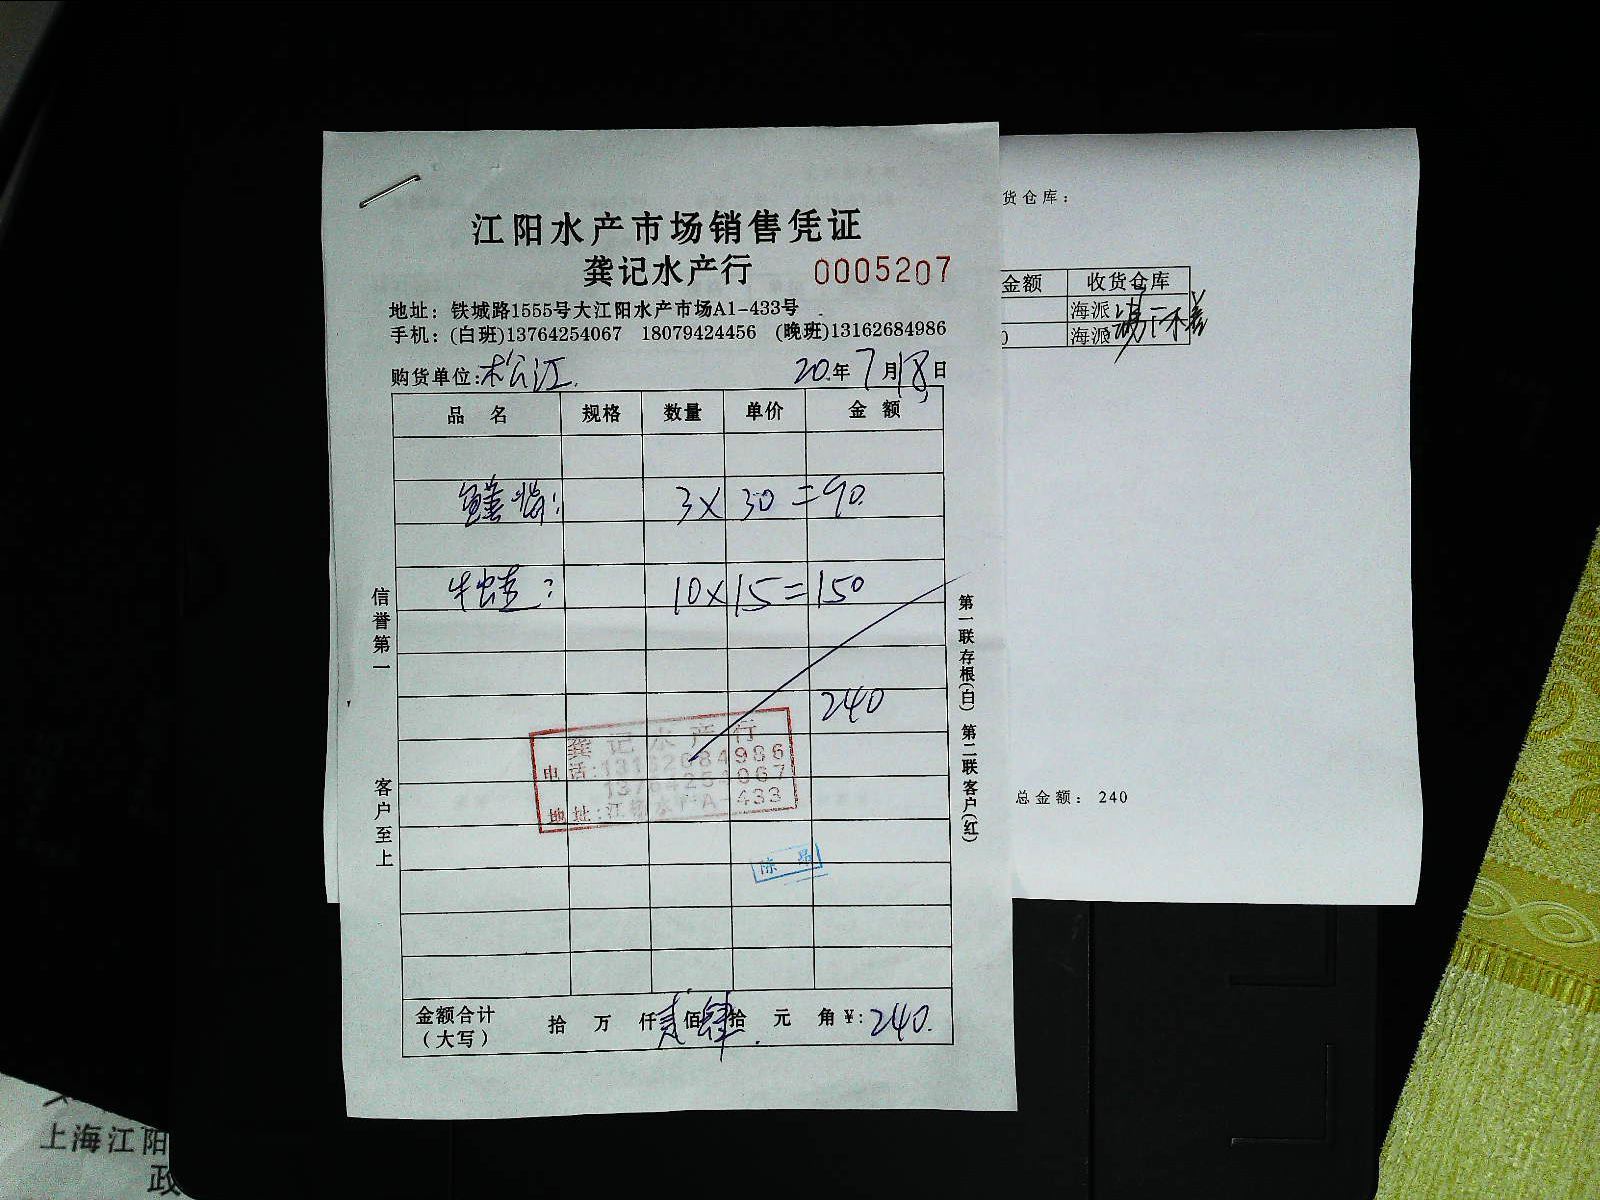 江阳水产市场销售凭证
龚记水产行 0005207
地址：铁城路1555号大江阳水产市场A1-433号
手机：(白班)13764254067 18079424456 (晚班)13162684986
购货单位:松江. 20.年7月18日
品 名 规格 数量 单价 金 额
3× 30 =90.
牛蛙: 10×15=150
240
龚记水产行
电话:13162684986
13764254067
地址:江阳水产A-433
陈
金额合计 拾 万 仟贰佰肆拾 元 角¥:240.
（大写）
信誉第一 客户至上
第一联存根(白) 第二联客户(红)
货仓库：
金额 收货仓库
海派
0 海派
总金额：240
上海江阳
政